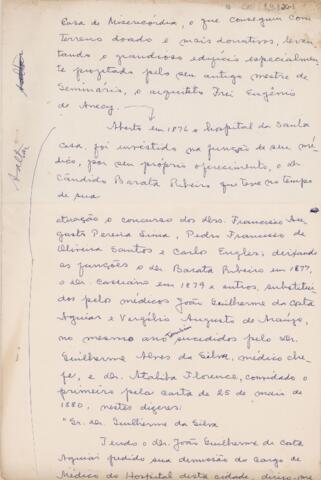 Casa de Misericórdia, o que conseguiu com
terreno doado e mais donativos, levan
tando o grandioso edifício especialmen
te projetado pelo seu antigo mestre de
Seminário, o arquiteto Frei Eugênio
de Anecy.
Aberto em 1876 o hospital da Santa
Casa, foi investido na função de seu mé
dico, por seu próprio oferecimento, o dr
Cândido Barata Ribeiro que teve no tempo
de sua
atuação o concurso dos drs. Francisco Au
gusto Pereira Lima, Pedro Francisco de
Oliveira Santos e Carlo Engles; deixando
as funções o dr Barata Ribeiro em 1877,
o dr. Casurino em 1879 e outros, substitui
dos pelo médicos João Guilherme da Costa
Aguiar e Vergílio Augusto de Araújo,
no mesmo ano também sucedidos pelo dr.
Guilherme Alves da Silva, médico che
fe, e dr. Ataliba Florence, convidado o
primeiro pela carta de 25 de maio de
1880, nestes dizeres:
"Sr. dr. Guilherme da Silva
Tendo o dr. João Guilherme de Costa
Aguiar pedido sua demissão do cargo de
Médico do Hospital desta cidade, dirijo-me
saltar
saltar